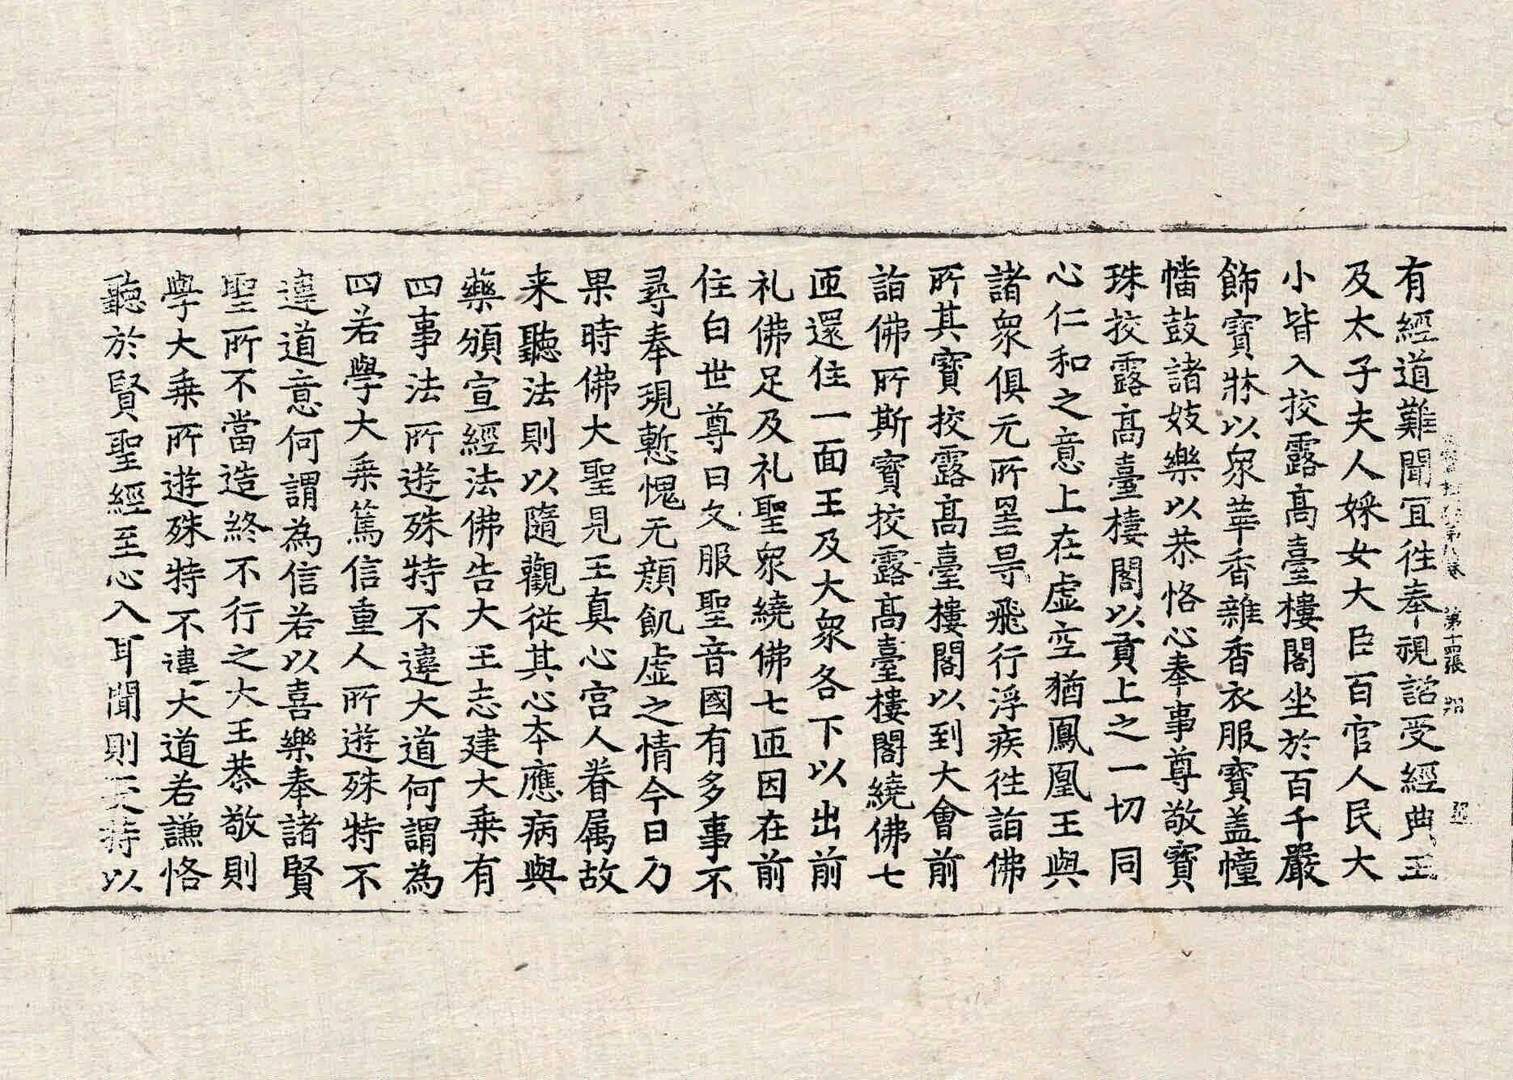 有經道難聞宜往奉視諮受經典王
第十四張
及太子夫人婇女大臣百官人民大
小皆入挍露髙臺樓閣坐於百千嚴
飾寶牀以衆華香雜香衣服寶盖幢
幡鼓諸妓樂以恭恪心奉事尊敬寶
珠挍露髙臺樓閣以貢上之一切同
心仁和之意上在虛空猶鳳凰王與
諸衆俱无所罣㝵飛行浮疾往詣佛
所其寶挍露髙臺樓閣以到大會前
詣佛所斯寶挍露髙臺樓閣繞佛七
匝還住一面王及大衆各下以出前
礼佛足及礼聖衆繞佛七匝因在前
住白世尊曰久服聖音國有多事不
尋奉現慙愧无顔飢虛之情今日乃
果時佛大聖見王真心宫人眷属故
来聽法則以隨觀從其心本應病與
藥頒宣經法佛告大王志建大乗有
四事法所遊殊特不違大道何謂為
四若學大乗篤信重人所遊殊特不
違道意何謂為信若以喜樂奉諸賢
聖所不當造終不行之大王恭敬則
學大乗所遊殊特不違大道若謙恪
聽於賢聖經至心入耳聞則受持以